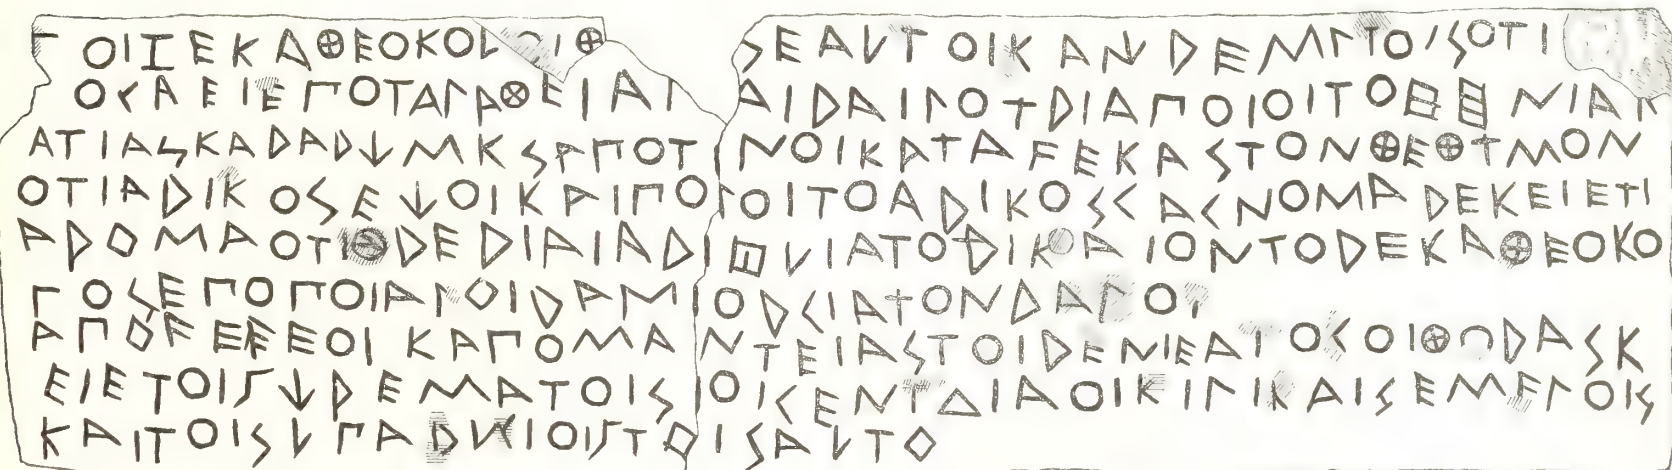 ΤΟΙΖΕΚΑΘΕΟΚΟΛΟΙΘ ΣΕΑΥΤΟΙΚΑΝΧΡΕΜΑΤΟΙΣΟΤΙ
ΟΥΑΕΙΕΠΟΤΑΡΑΘΕΙΑΙ ΑΙΔΑΙΛΟΤΡΙΑΠΟΙΟΙΤΟ ΝΙΑΚ
ΑΤΙΑΣΚΑΔΑΡΧΜ ΑΠΟΤΙΝΟΙΚΑΤΑϜΕΚΑΣΤΟΝΘΕΘΤΜΟΝ
ΟΤΙΑΔΙΚΟΣΕΧΟΙΚΑΙΠΟΙΟΙΤΟΑΔΙΚΟΣΓΑΣΝΟΜΑΔΕΚΕΙΕΤΙ
ΑΡΟΜΑΟΤΙ ΔΕΔΙΑΙΑΔΙ ΥΙΑΤΟΔΙΚΑΙΟΝΤΟΔΕΚΑΘΕΟΚΟ
ΛΟΣΕΠΟΠΟΙΑΛΟΙΔΑΜΙΟΡΓΙΑΤΟΝΔΑΛΟ
ΑΠΟϜΕΛΕΟΙΚΑΠΟΜΑΝΤΕΙΑΣΤΟΙΔΕΜΕΑΤΟΣΟΙΘΟΔΑΣΚ
ΕΙΕΤΟΙΣΧΡΕΜΑΤΟΙΣΟΙΣΕΝΤΔΙΑΟΙΚΙΛΙΚΑΙΣΕΜΕΛΟΙΣ
ΚΑΙΤΟΙΣΥΠΑΔΥΚΙΟΙΣΤΟΙΣΑΥΤΟ